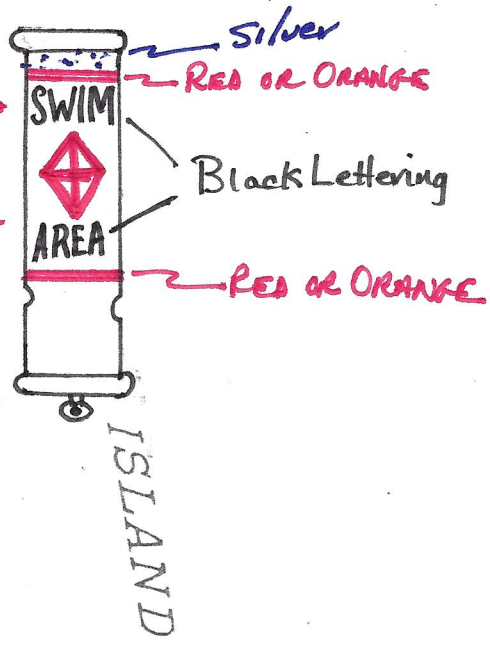 Silver
RED OR ORANGE
SWIM
Black Lettering
AREA
RED OR ORANGE
ISLAND